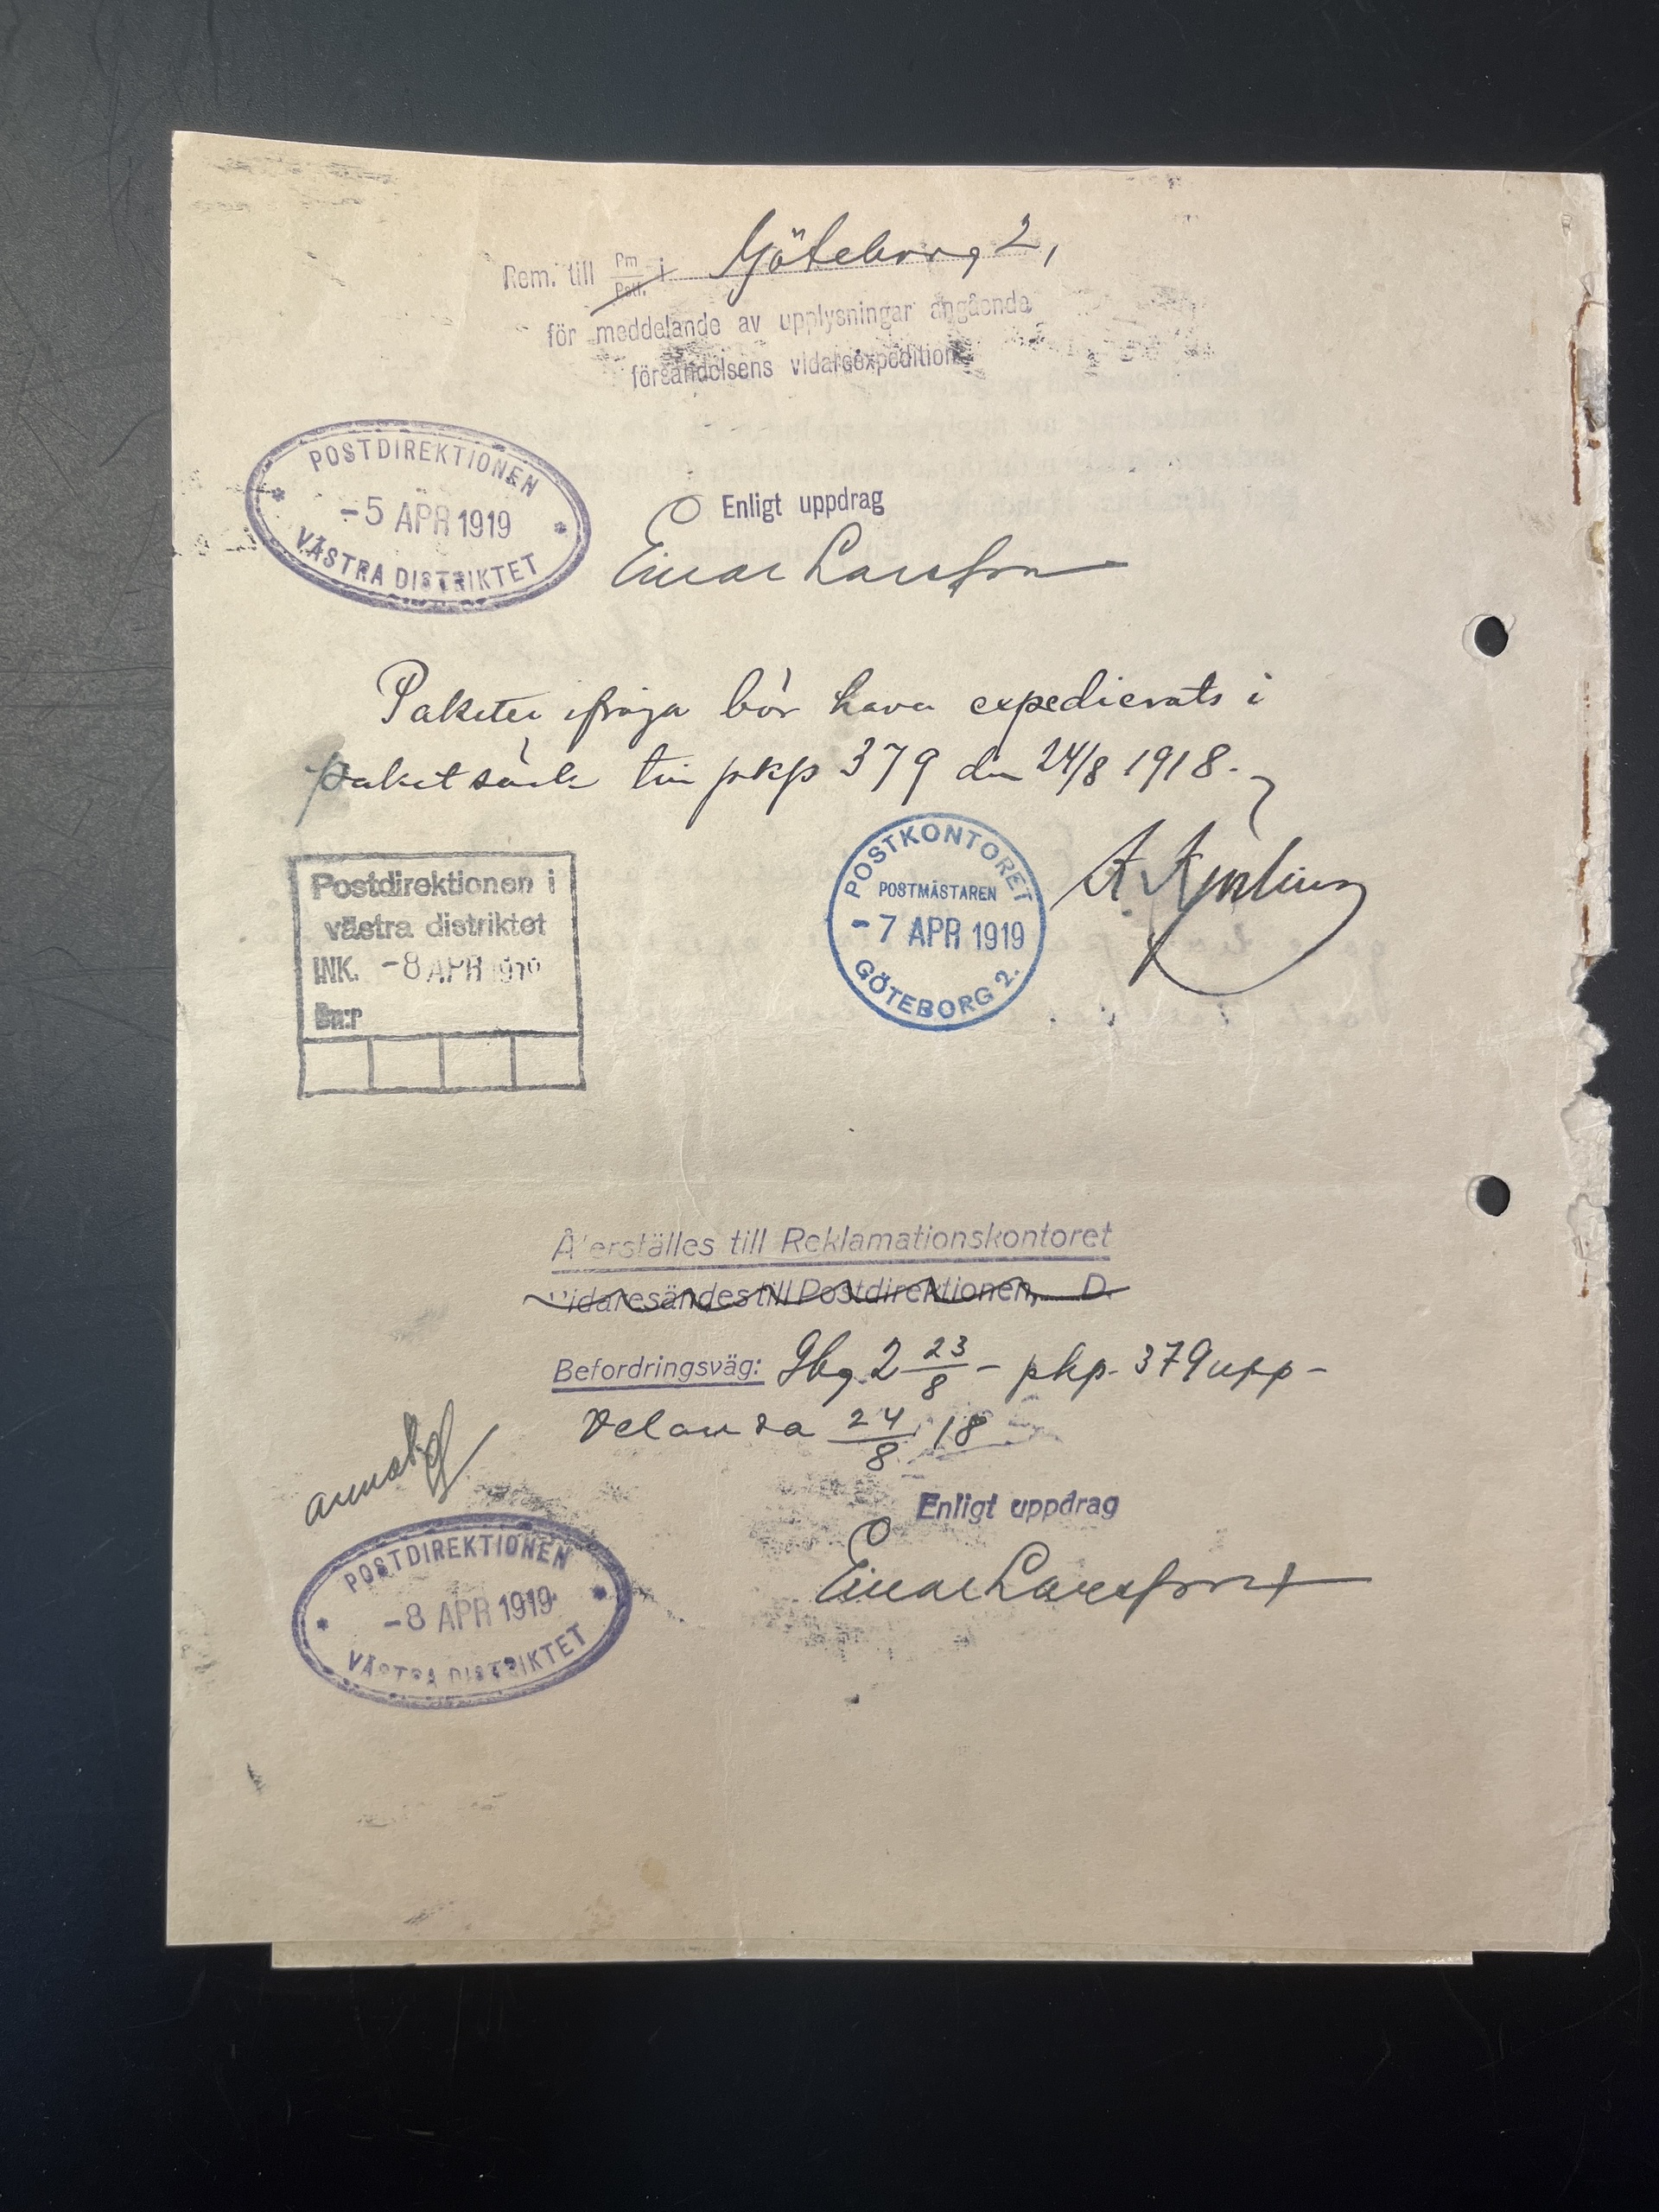 Rem. till Pm/Pstf. i Göteborg 2,
för meddelande av upplysningar angående
försändelsens vidareexpedition
POSTDIREKTIONEN
-5 APR 1919
VÄSTRA DISTRIKTET
Enligt uppdrag
Einar Larsson
Paketet ifråga bör hava expedierats i
paketsäck till pkp 379 den 24/8 1918.
POSTKONTORET
POSTMÄSTAREN
-7 APR 1919
GÖTEBORG 2.
Postdirektionen i
västra distriktet
INK. -8 APR 1919
Dn:r
Återställes till Reklamationskontoret
Vidaresändes till Postdirektionen, D.
Befordringsväg: Gbg 2 23/8 - pkp. 379 upp -
Velanda 24/8 18
Enligt uppdrag
Einar Larsson
POSTDIREKTIONEN
-8 APR 1919
VÄSTRA DISTRIKTET